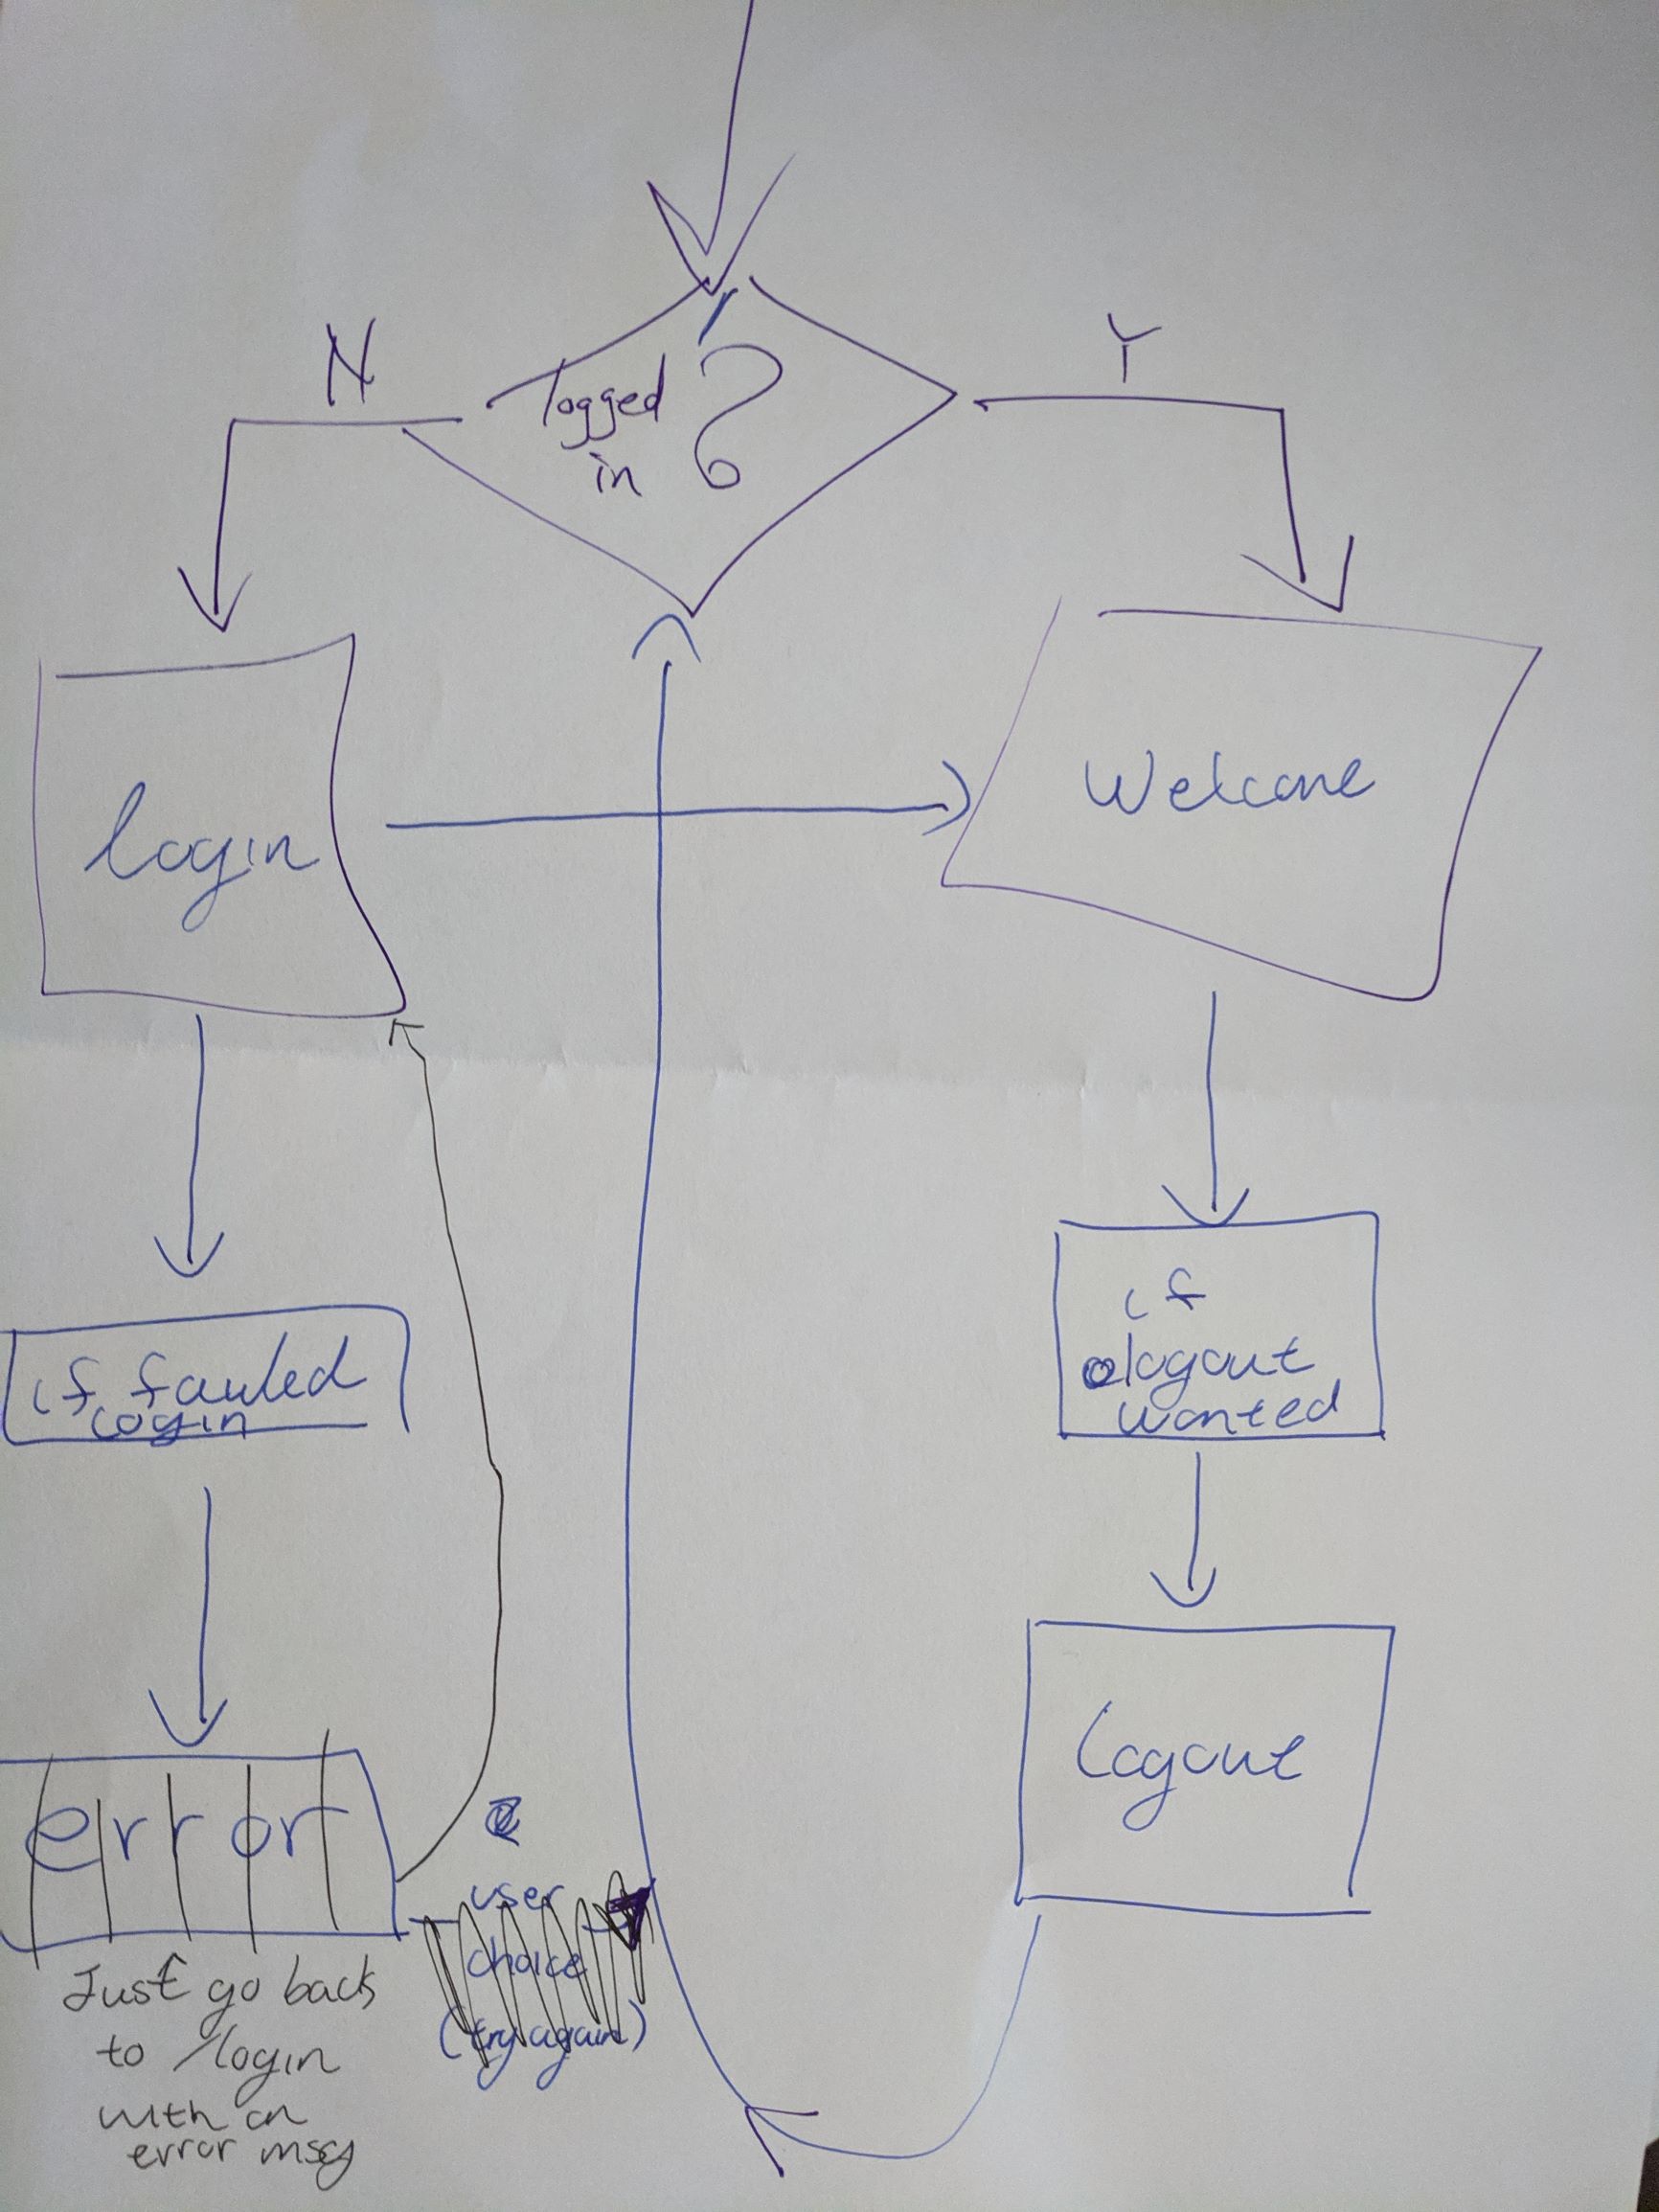 N
Y
logged
in ?
login
Welcome
if fauled
login
if
logout
wanted
error
logout
user
choice
(try again)
Just go back
to /login
with an
error msg